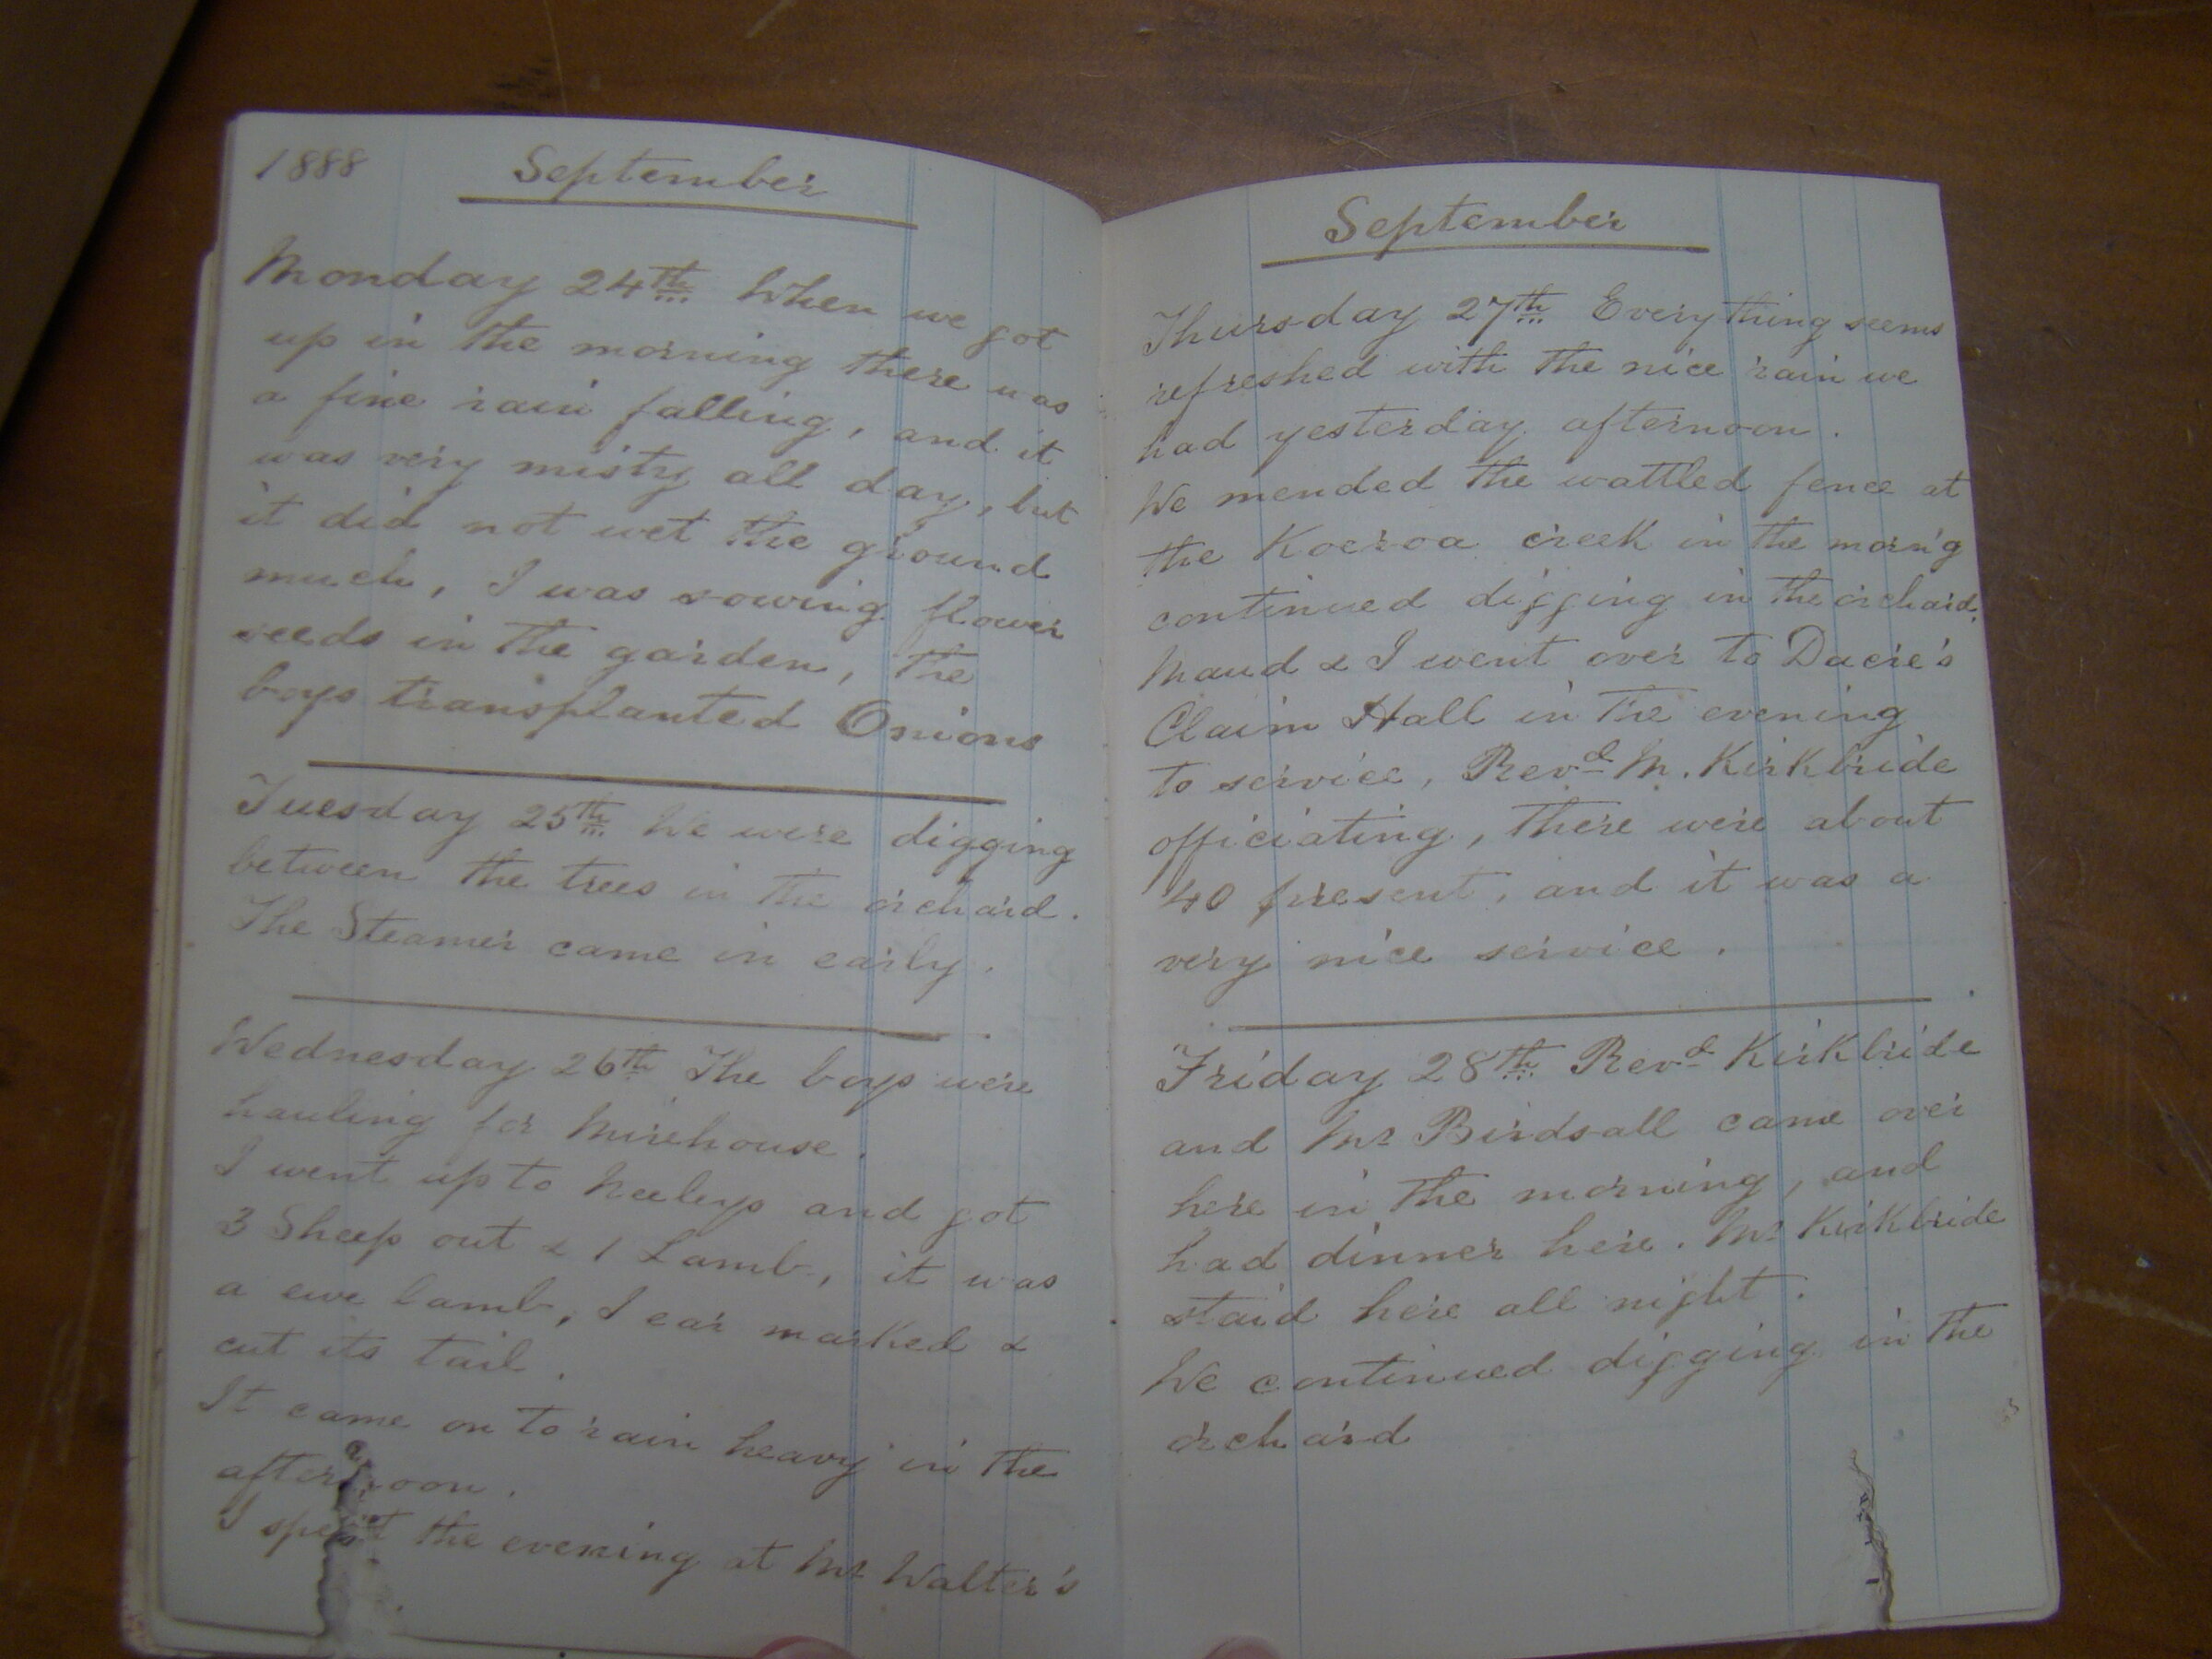 1888 September
Monday 24th When we got
up in the morning there was
a fine rain falling, and it
was very misty all day, but
it did not wet the ground
much, I was sowing flower
seeds in the garden, the
boys transplanted Onions
Tuesday 25th We were digging
between the trees in the orchard.
The Steamer came in early.
Wednesday 26th The boys were
hauling for Mirehouse.
I went up to Neeleys and got
3 Sheep out & 1 Lamb, it was
a ewe lamb, I ear marked &
cut its tail.
It came on to rain heavy in the
afternoon.
I spent the evening at Mr Walter's
September
Thursday 27th Everything seems
refreshed with the nice rain we
had yesterday afternoon.
We mended the wattled fence at
the Koeroa creek in the morn'g
continued digging in the orchard.
Maud & I went over to Dacre's
Claim Hall in the evening
to service, Revd M. Kirkbride
officiating, there were about
40 present, and it was a
very nice service.
Friday 28th Revd Kirkbride
and Mr Birdsall came over
here in the morning, and
had dinner here. Mr Kirkbride
staid here all night.
We continued digging in the
orchard